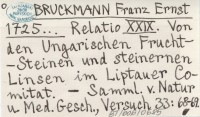 BRUCKMANN Franz Ernst
1725... Relatio XXIX. Von
den Ungarischen Frucht-
-Steinen und steinernen
Linsen im Liptauer Co-
mitat. - Samml. v. Natur
u Med. Gesch., Versuch 33: 68-62